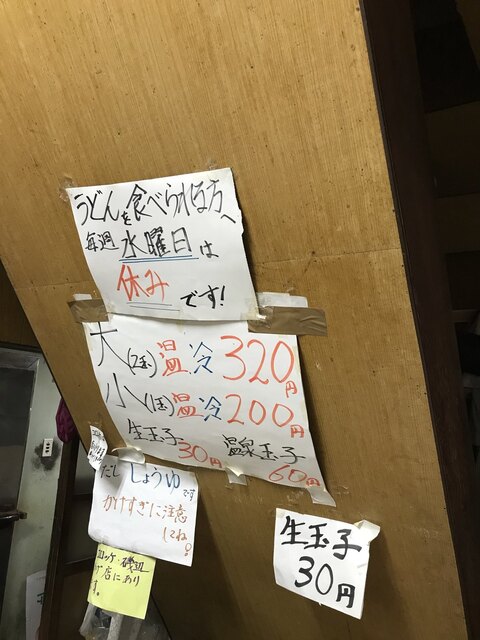 うどんを食べられる方へ
毎週水曜日は
休みです!
大(2玉)温冷320円
小(1玉)温冷200円
生玉子30円 温泉玉子60円
だししょうゆです
かけすぎに注意
してね!
コロッケ・磯辺
店にあり
す。
生玉子
30円